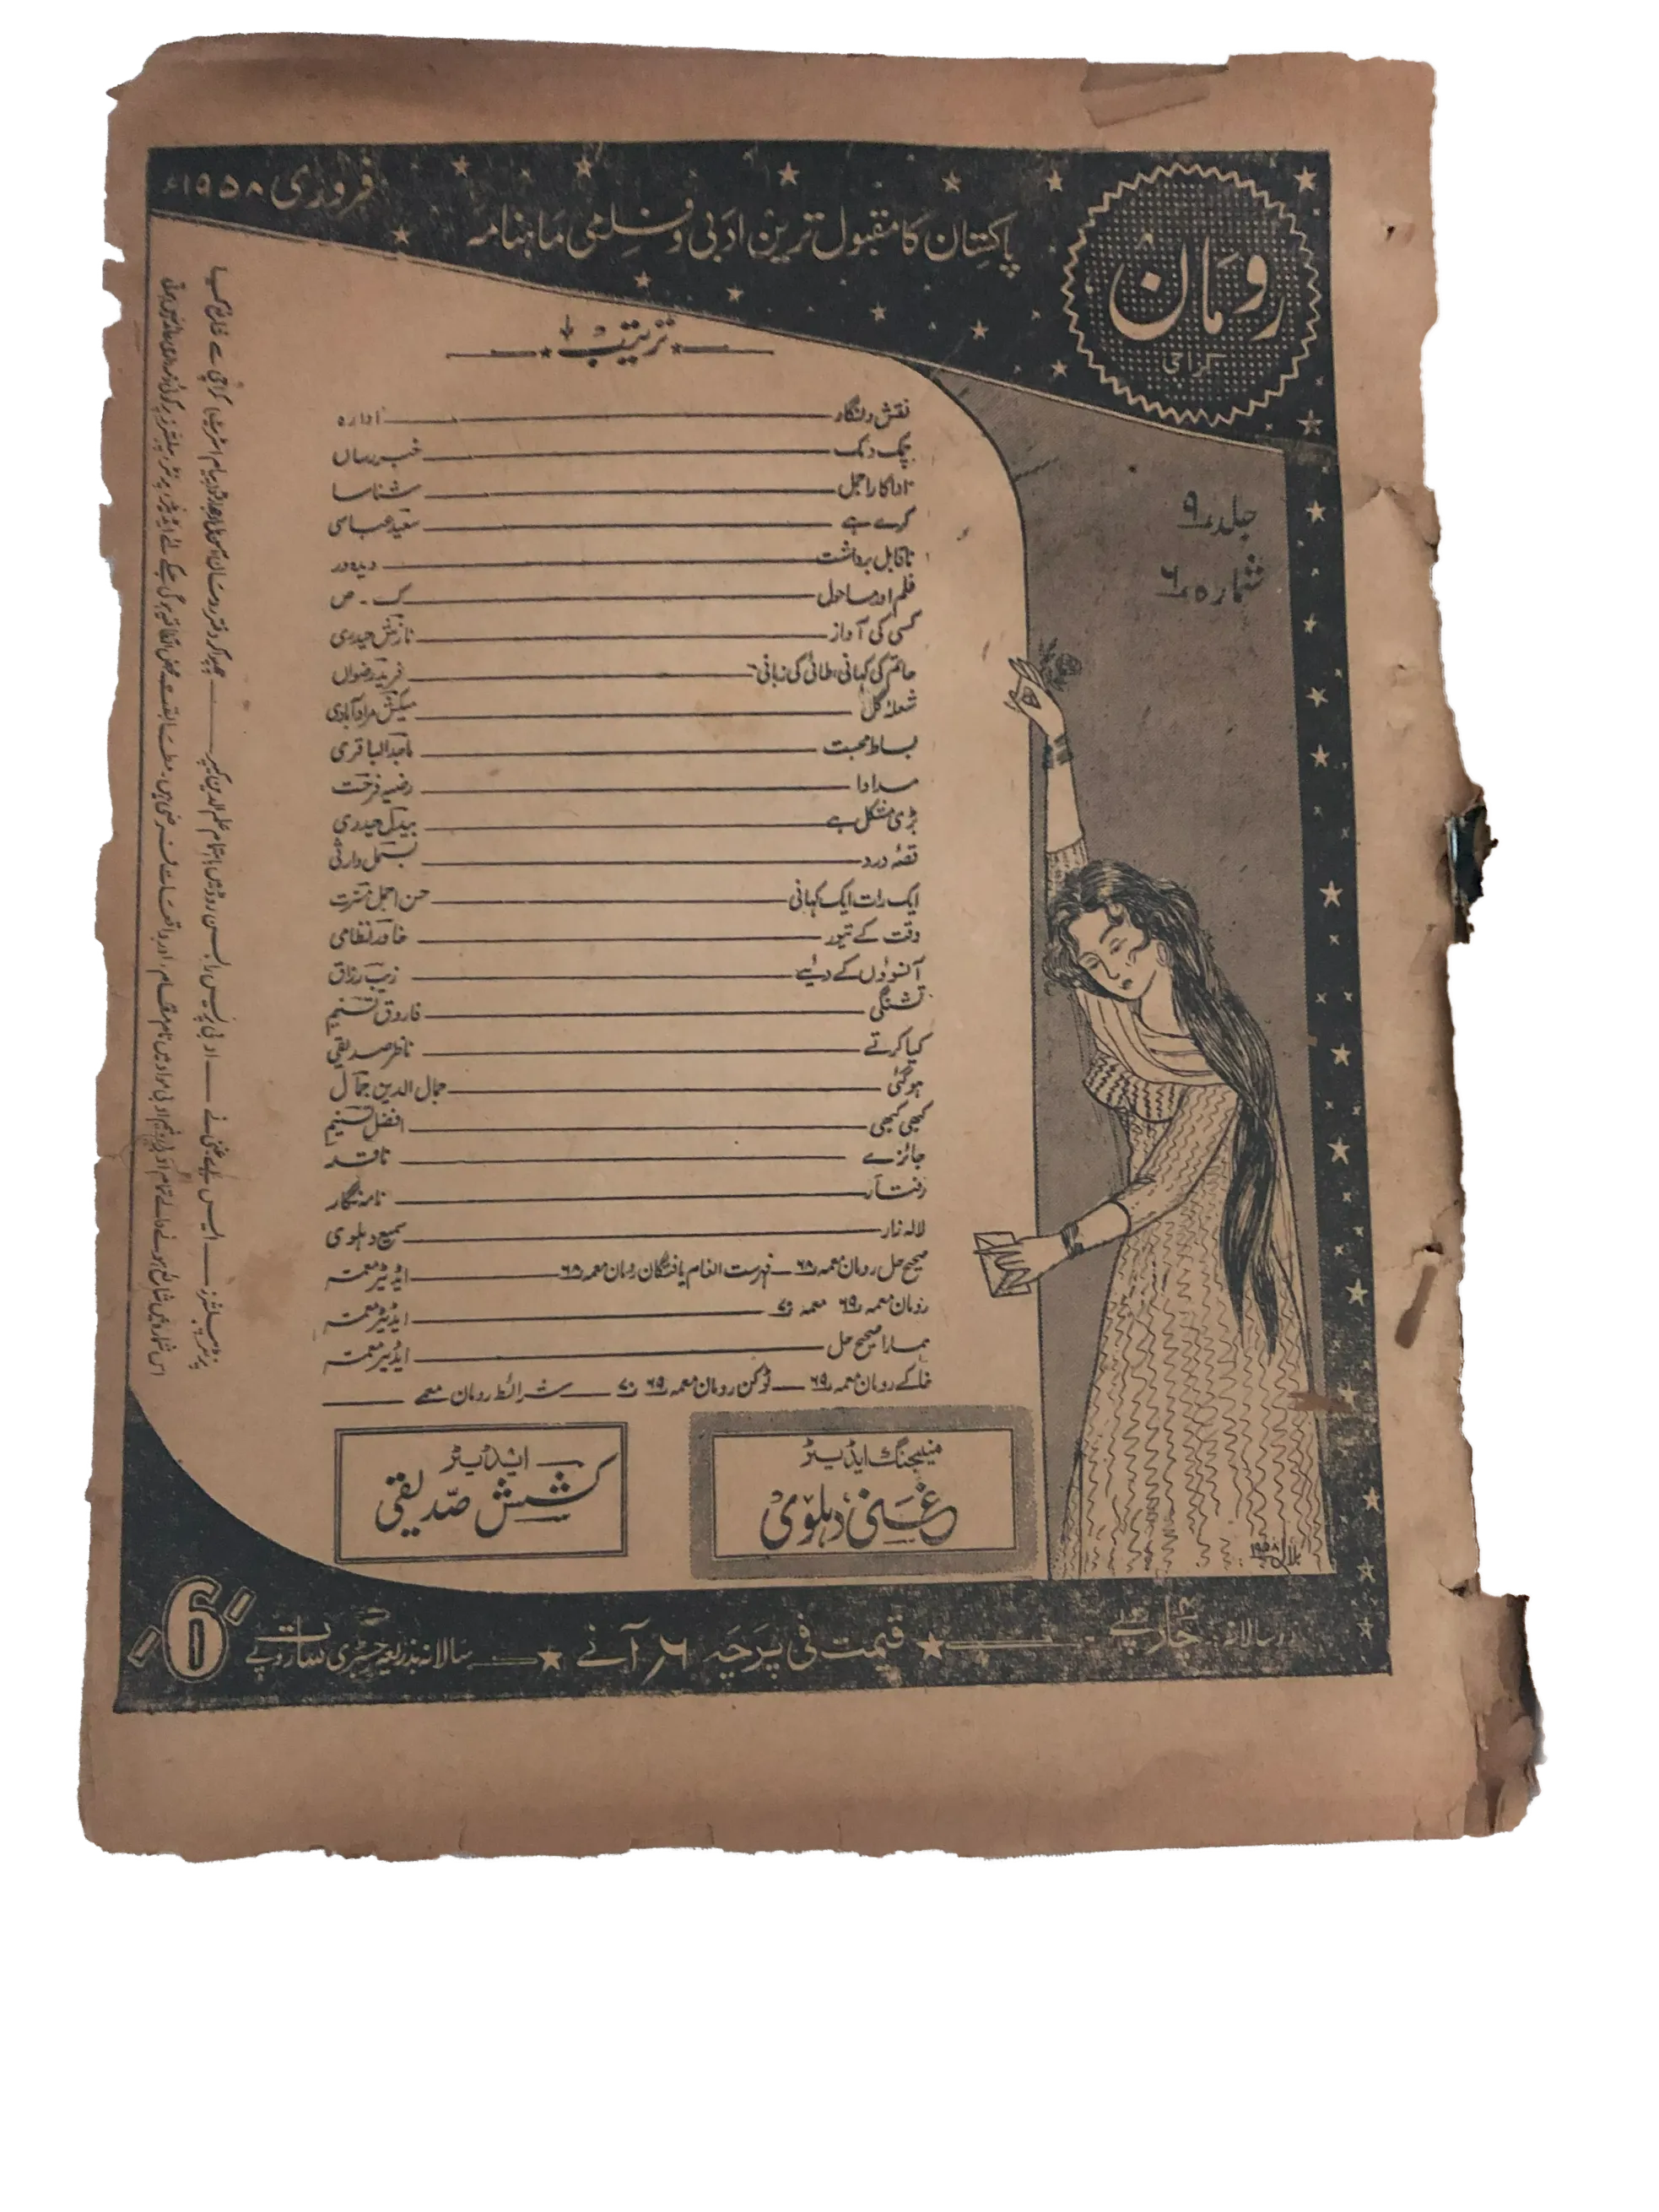 رومان
کراچی
پاکستان کا مقبول ترین ادبی و فلمی ماہنامہ
فروری ۱۹۵۸ء
جلد ۹
شمارہ ۶
ترتیب
نقش و نگار ادارہ
چمک دمک خبررساں
اداکار اجمل شناسا
کرے ہے سعید عباسی
ناقابل برداشت دیدہ ور
فلم اور ماحول ک ۔ ص
کسی کی آواز نازش حیدری
حاتم کی کہانی، طائی کی زبانی فرید رضواں
شعلۂ گل میکش مرادآبادی
بساط محبت ماجد الباقری
مداوا رضیہ فرحت
بڑی مشکل ہے بیدل حیدری
قصۂ درد بسمل وارثی
ایک رات ایک کہانی حسن اجمل مسرت
وقت کے تیور خاور نظامی
آنسوؤں کے دیئے زیب رزاق
تشنگی فاروق تسنیم
کیا کرتے ناظر صدیقی
ہوگئی جمال الدین جمال
کبھی کبھی افضل تسنیم
جائزے ناقد
رفتار نامہ نگار
لالہ زار سمیع دہلوی
صحیح حل رومان معمہ ۶۸ فہرست انعام یافتگان رومان معمہ ۶۸ ایڈیٹر معمہ
رومان معمہ ۶۹ معمہ ۷۰ ایڈیٹر معمہ
ہمارا صحیح حل ایڈیٹر معمہ
خاکے رومان معمہ ۶۹ ٹوکن رومان معمہ ۶۹ ۷۰ شرائط رومان معمے
منیجنگ ایڈیٹر
غنی دہلوی
ایڈیٹر
کشش صدیقی
بلال ۱۹۵۸
زر سالانہ چار روپے
قیمت فی پرچہ ۶؍ آنے
سالانہ بذریعہ رجسٹری سات روپے
-/6/